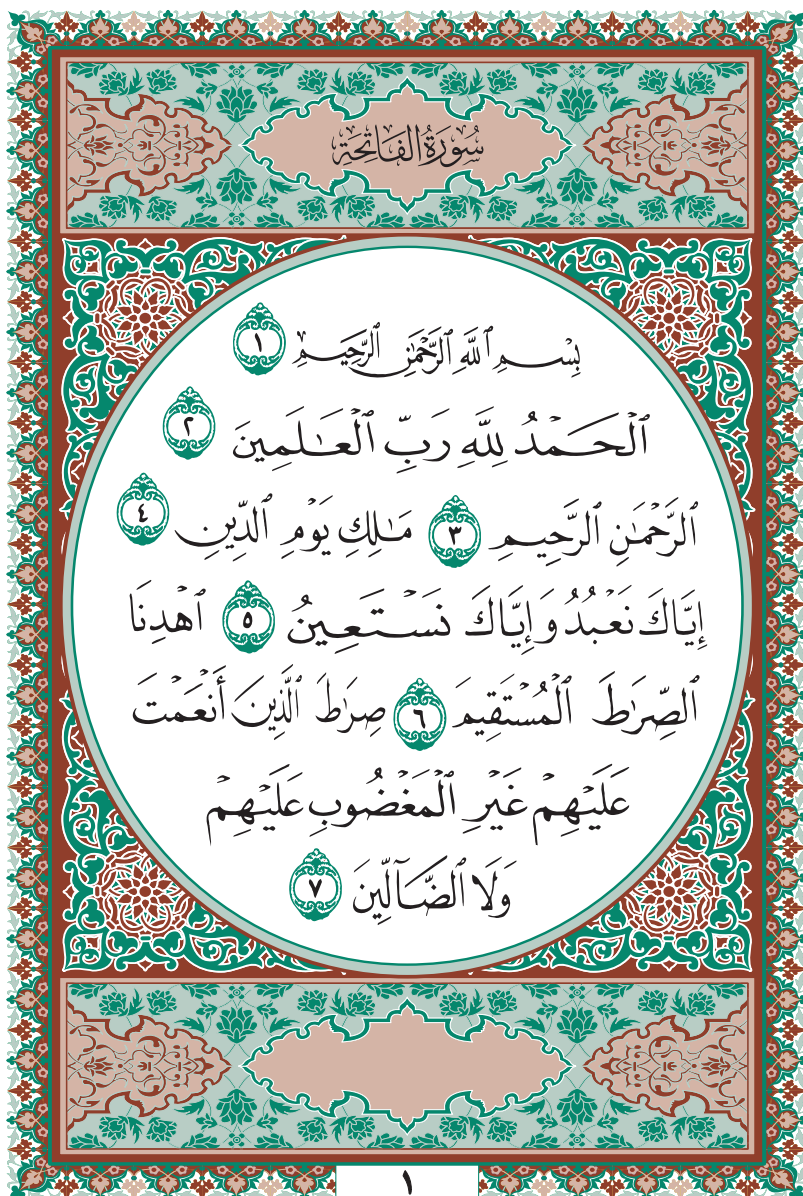 سُورَةُ الفَاتِحَةِ
بِسۡمِ ٱللَّهِ ٱلرَّحۡمَٰنِ ٱلرَّحِيمِ ١
ٱلۡحَمۡدُ لِلَّهِ رَبِّ ٱلۡعَٰلَمِينَ ٢
ٱلرَّحۡمَٰنِ ٱلرَّحِيمِ ٣ مَٰلِكِ يَوۡمِ ٱلدِّينِ ٤
إِيَّاكَ نَعۡبُدُ وَإِيَّاكَ نَسۡتَعِينُ ٥ ٱهۡدِنَا
ٱلصِّرَٰطَ ٱلۡمُسۡتَقِيمَ ٦ صِرَٰطَ ٱلَّذِينَ أَنۡعَمۡتَ
عَلَيۡهِمۡ غَيۡرِ ٱلۡمَغۡضُوبِ عَلَيۡهِمۡ
وَلَا ٱلضَّآلِّينَ ٧
١